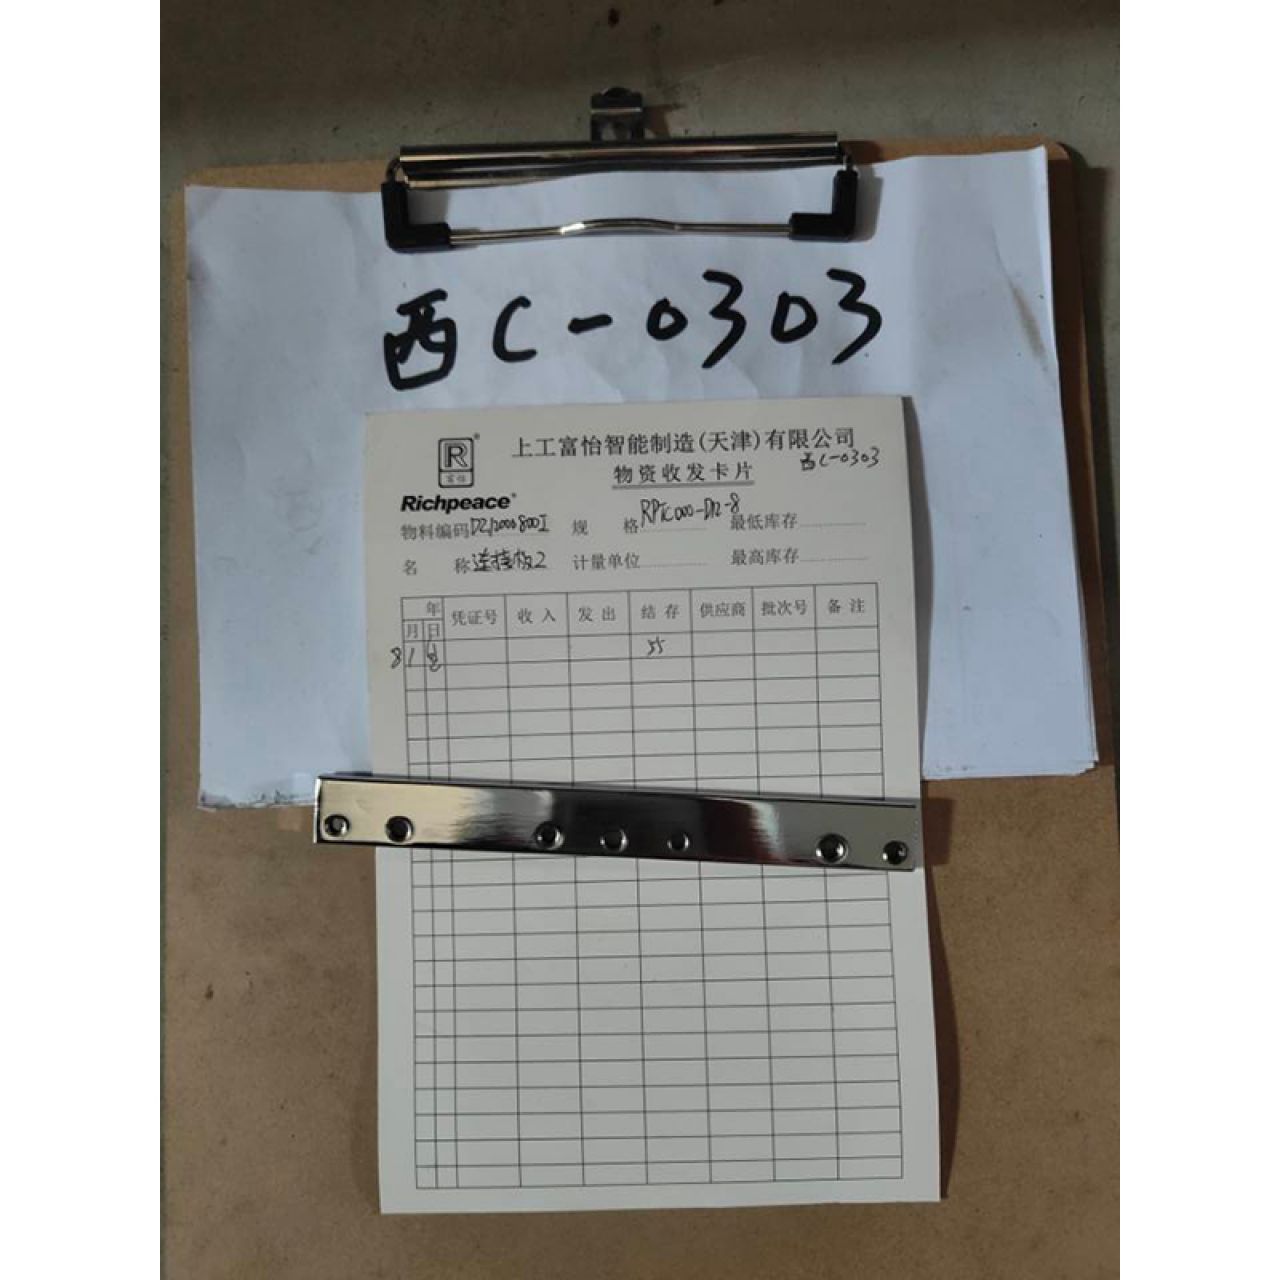 西C-0303
上工富怡智能制造(天津)有限公司
R
富怡
物资收发卡片
西C-0303
Richpeace
物料编码 规 格 最低库存
名 称 连接板2 计量单位 最高库存
年 凭证号 收入 发出 结存 供应商 批次号 备注
月 日
55